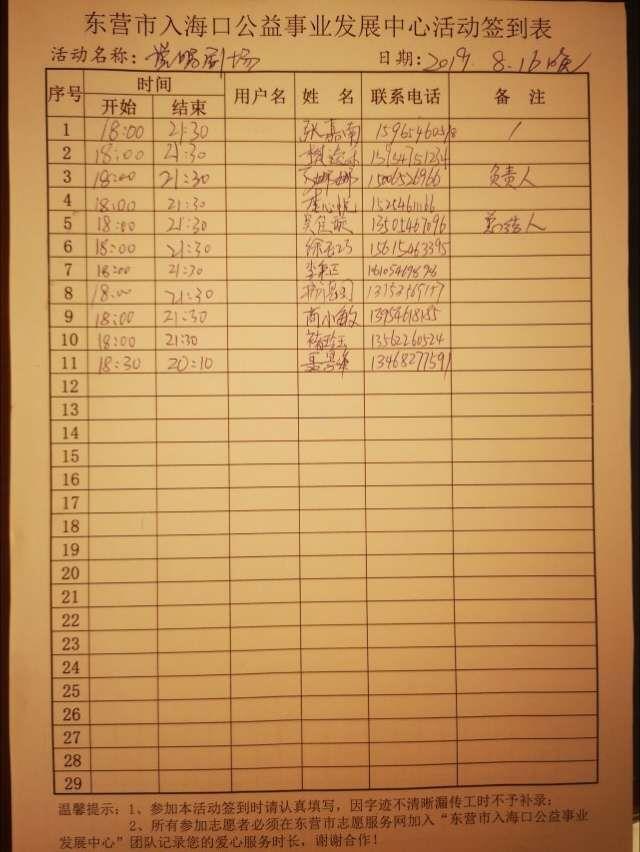 东营市入海口公益事业发展中心活动签到表
活动名称: 剧场 日期: 2019. 8.16 晚
序号 时间 用户名 姓 名 联系电话 备 注
开始 结束
1 18:00 21:30 张嘉南 /
2 18:00 21:30 13954751234
3 18:00 21:30 15006526966 负责人
4 18:00 21:30 李心悦
5 18:00 21:30 13505467096 总结人
6 18:00 21:30 15615463395
7 18:00 21:30
8 18:00 21:30
9 18:00 21:30 尚小敏 13954618155
10 18:00 21:30 13562260524
11 18:30 20:10 13468277591
12
13
14
15
16
17
18
19
20
21
22
23
24
25
26
27
28
29
温馨提示:1、参加本活动签到时请认真填写,因字迹不清晰漏传工时不予补录;
2、所有参加志愿者必须在东营市志愿服务网加入“东营市入海口公益事业
发展中心”团队记录您的爱心服务时长,谢谢合作!